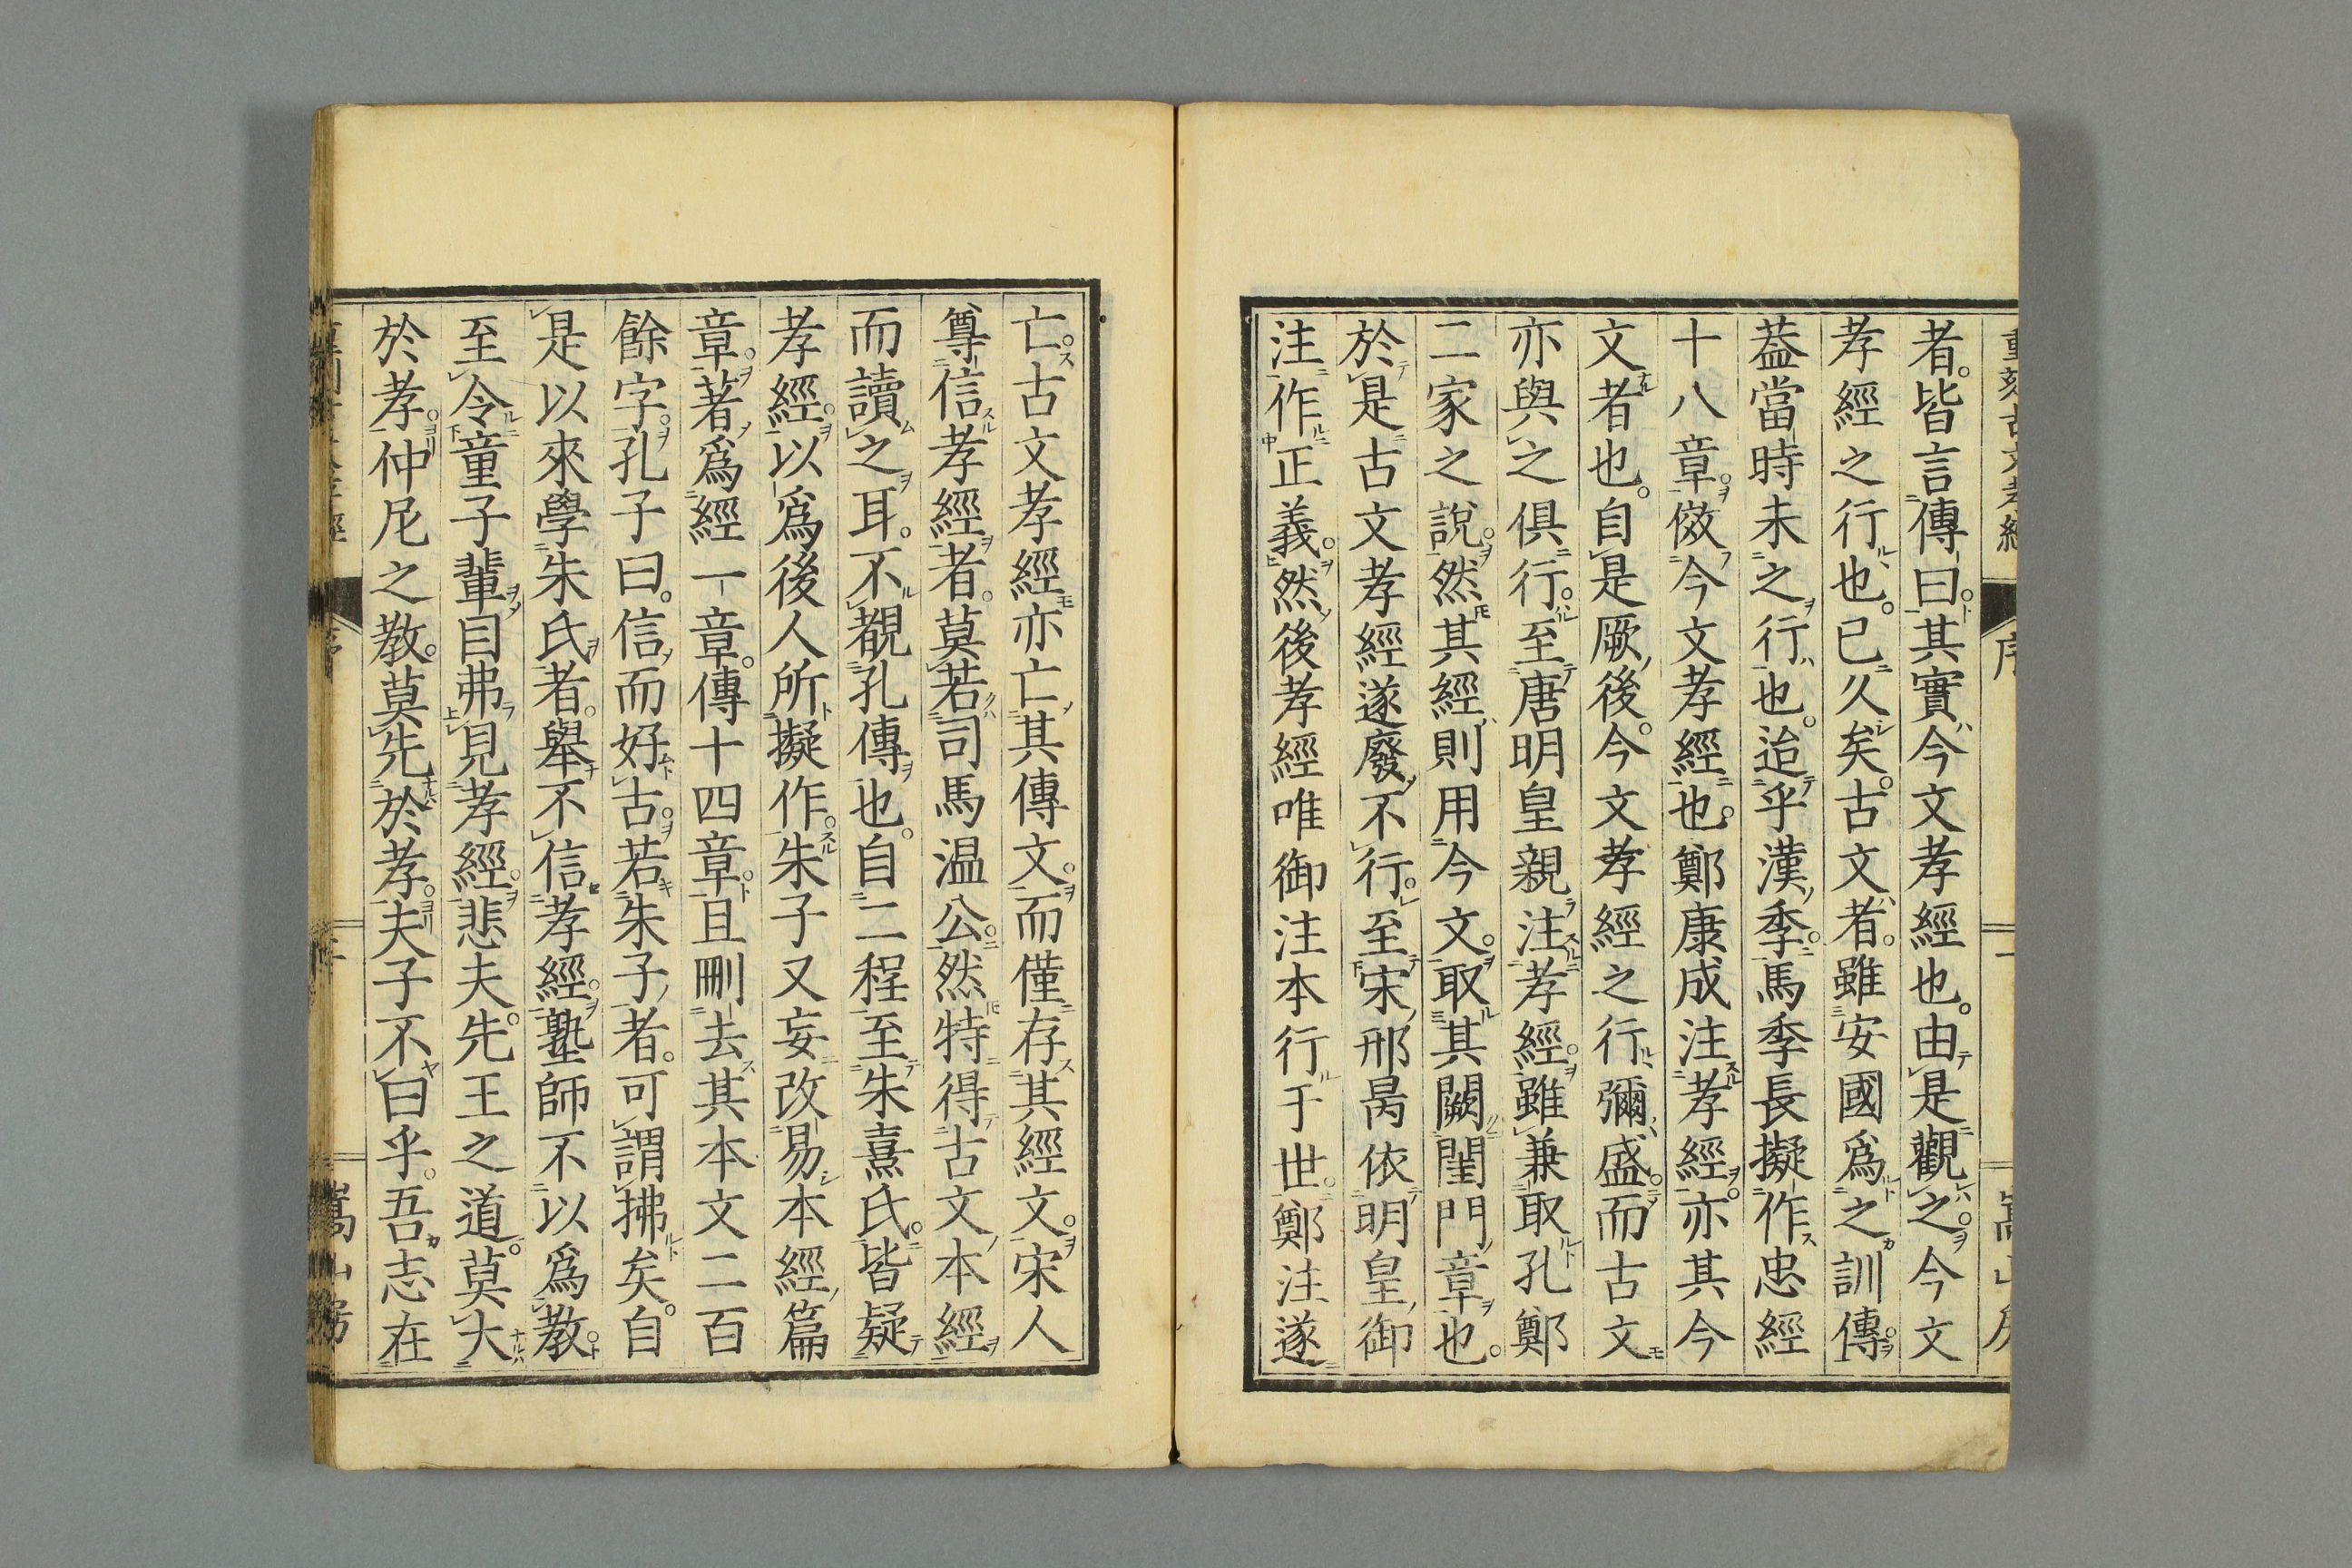 者。皆言傳曰。其實今文孝經也。由是觀之。今文
孝經之行也。已久矣。古文者。雖安國爲之訓傳。
葢當時未之行也。迨乎漢季。馬季長擬作忠經
十八章。傚今文孝經也。鄭康成注孝經。亦其今
文者也。自是厥後。今文孝經之行彌盛。而古文
亦與之俱行。至唐明皇親注孝經。雖兼取孔鄭
二家之說。然其經則用今文。取其闕閨門章也。
於是古文孝經遂廢不行。至宋邢昺依明皇御
注作正義。然後孝經唯御注本行于世。鄭注遂
亡。古文孝經亦亡其傳文。而僅存其經文。宋人
尊信孝經者。莫若司馬温公。然特得古文本經
而讀之耳。不覩孔傳也。自二程至朱熹氏。皆疑
孝經。以爲後人所擬作。朱子又妄改易本經篇
章。著爲經一章。傳十四章。且刪去其本文二百
餘字。孔子曰。信而好古。若朱子者。可謂拂矣。自
是以來學朱氏者。舉不信孝經。塾師不以爲教。
至令童子輩目弗見孝經。悲夫先。王之道。莫大
於孝。仲尼之教。莫先於孝。夫子不曰乎。吾志在